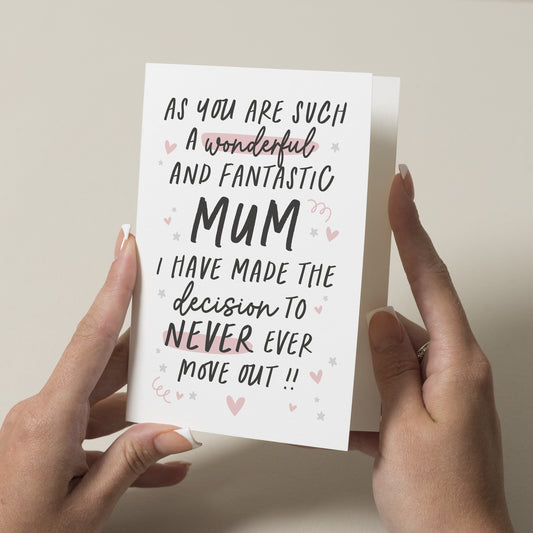 AS YOU ARE SUCH
A wonderful
AND FANTASTIC
MUM
I HAVE MADE THE
decision TO
NEVER EVER
MOVE OUT !!